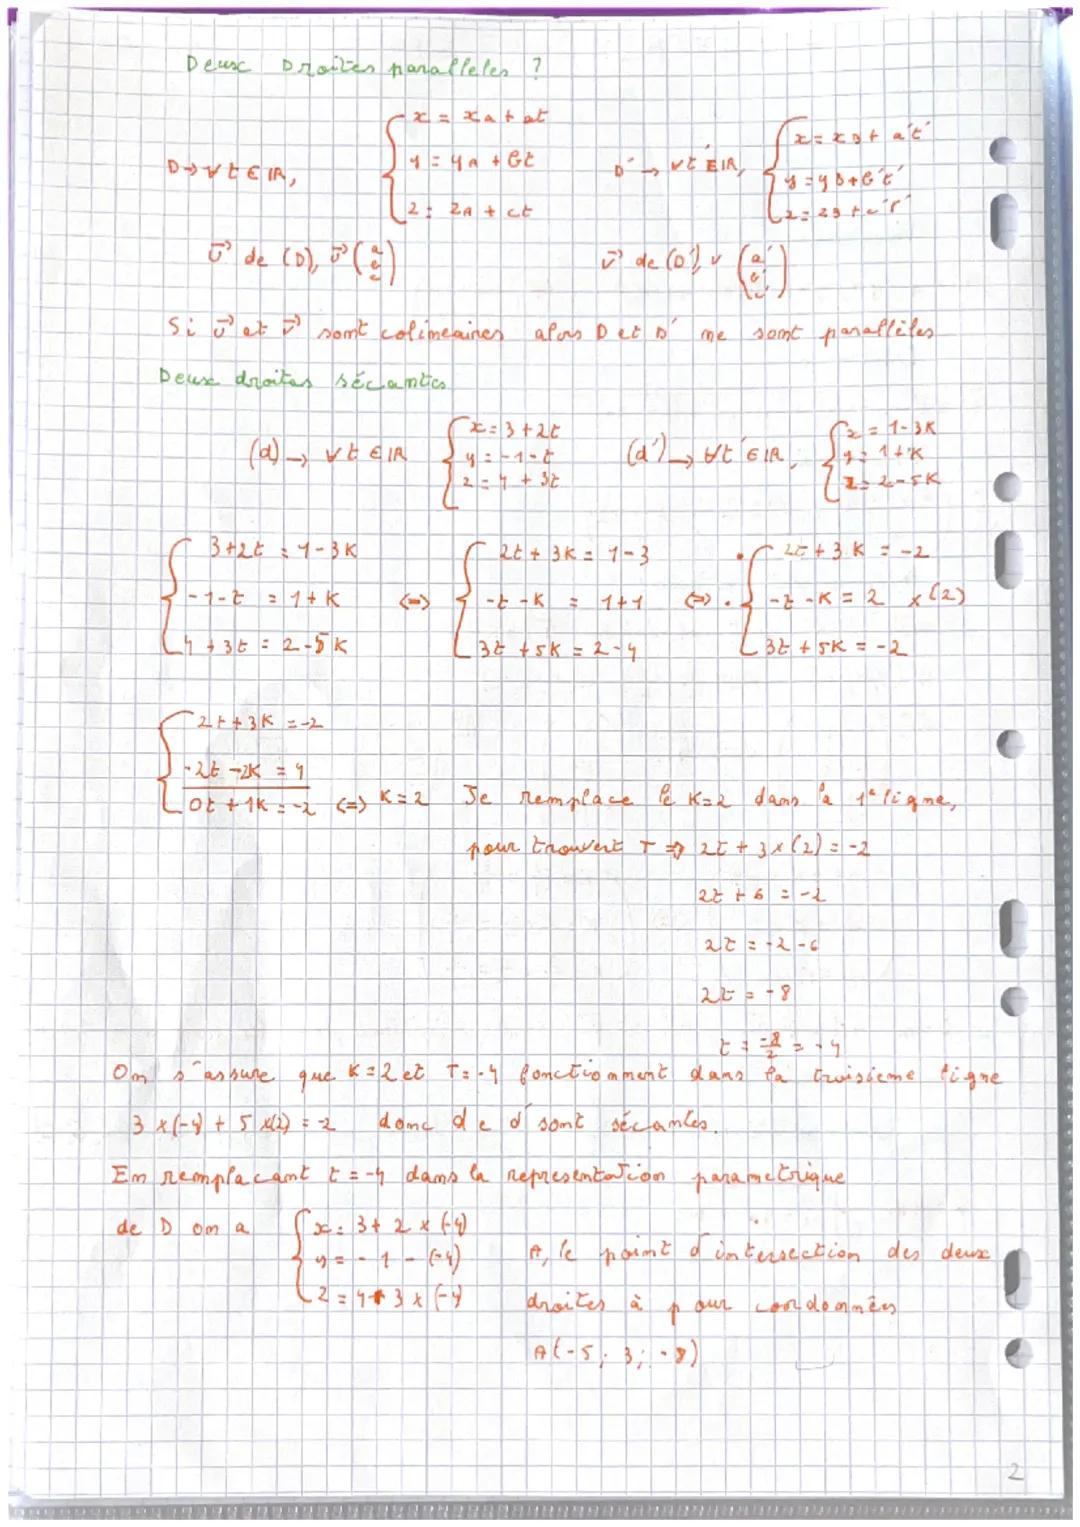 Deux Droites paralleles ?
D → ∀ t ∈ IR, { x = xA + at
y = yA + bt
z = zA + ct
D' → ∀ t' ∈ IR, { x = xB + a't'
y = yB + b't'
z = zB + c't'
u⃗ de (D), u⃗ (a b c)
v⃗ de (D'), v (a' b' c')
Si u⃗ et v⃗ sont colineaires alors D et D' ne sont parallèles
Deux droites sécantes
(d) → ∀ t ∈ IR { x = 3 + 2t
y = -1 - t
z = 4 + 3t
(d') → ∀ t' ∈ IR, { x = 1 - 3K
y = 1 + K
z = 2 - 5K
{ 3 + 2t = 1 - 3K
-1 - t = 1 + K
4 + 3t = 2 - 5K
<=> { 2t + 3K = 1 - 3
-t - K = 1 + 1
3t + 5K = 2 - 4
<=> { 2t + 3K = -2
-t - K = 2 x (2)
3t + 5K = -2
{ 2t + 3K = -2
-2t - 2K = 4
0t + 1K = -2 <=> K = 2
Je remplace le K=2 dans la 1e ligne,
pour trouvert T => 2t + 3 x (2) = -2
2t + 6 = -2
2t = -2 - 6
2t = -8
t = -8/2 = -4
On s'assure que K = 2 et T = -4 fonctionnment dans la troisieme ligne
3 x (-4) + 5 x (2) = -2 donc d e d' sont sécantes.
En remplacant t = -4 dans la representation parametrique
de D on a { x = 3 + 2 x (-4)
y = -1 - (-4)
z = 4 + 3 x (-4)
A, le point d'intersection des deux
droites à pour coordonnées
A(-5 ; 3 ; -8)
2